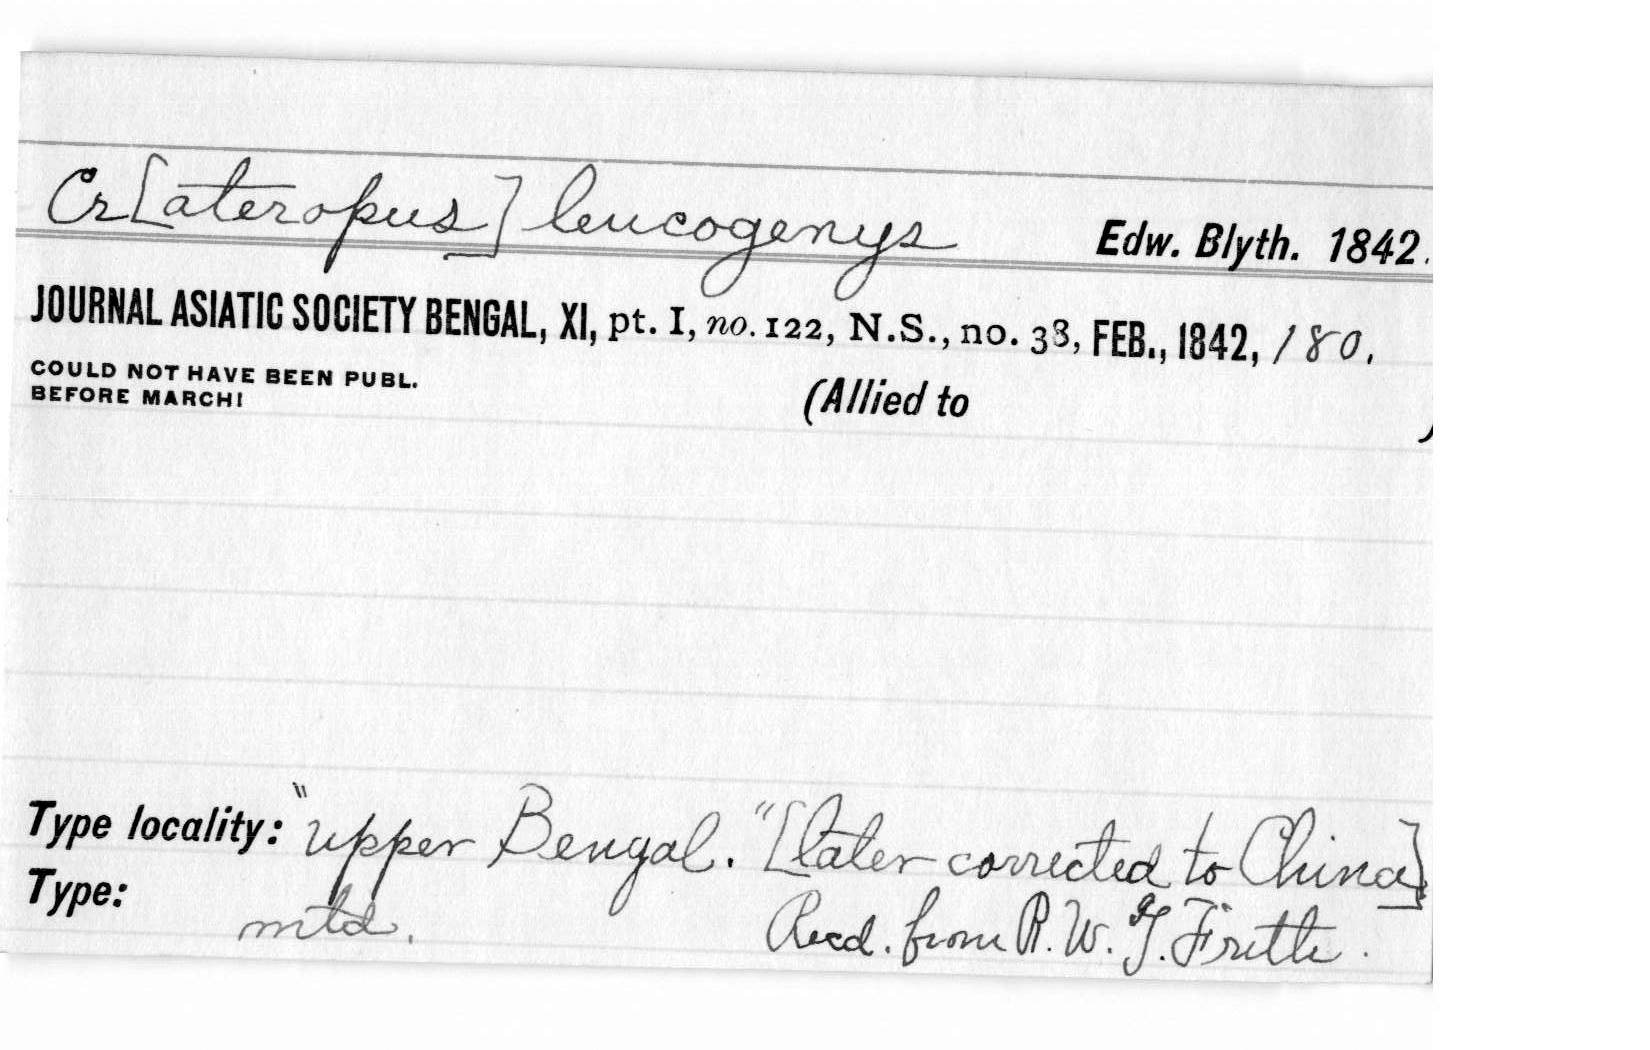 Cr[ateropus] leucogenys Edw. Blyth. 1842.
JOURNAL ASIATIC SOCIETY BENGAL, XI, pt. I, no. 122, N.S., no. 38, FEB., 1842, 180.
COULD NOT HAVE BEEN PUBL.
BEFORE MARCH!
(Allied to )
Type locality: "upper Bengal." [later corrected to China]
Type: mtd. Recd. from R. W. G. Frith.